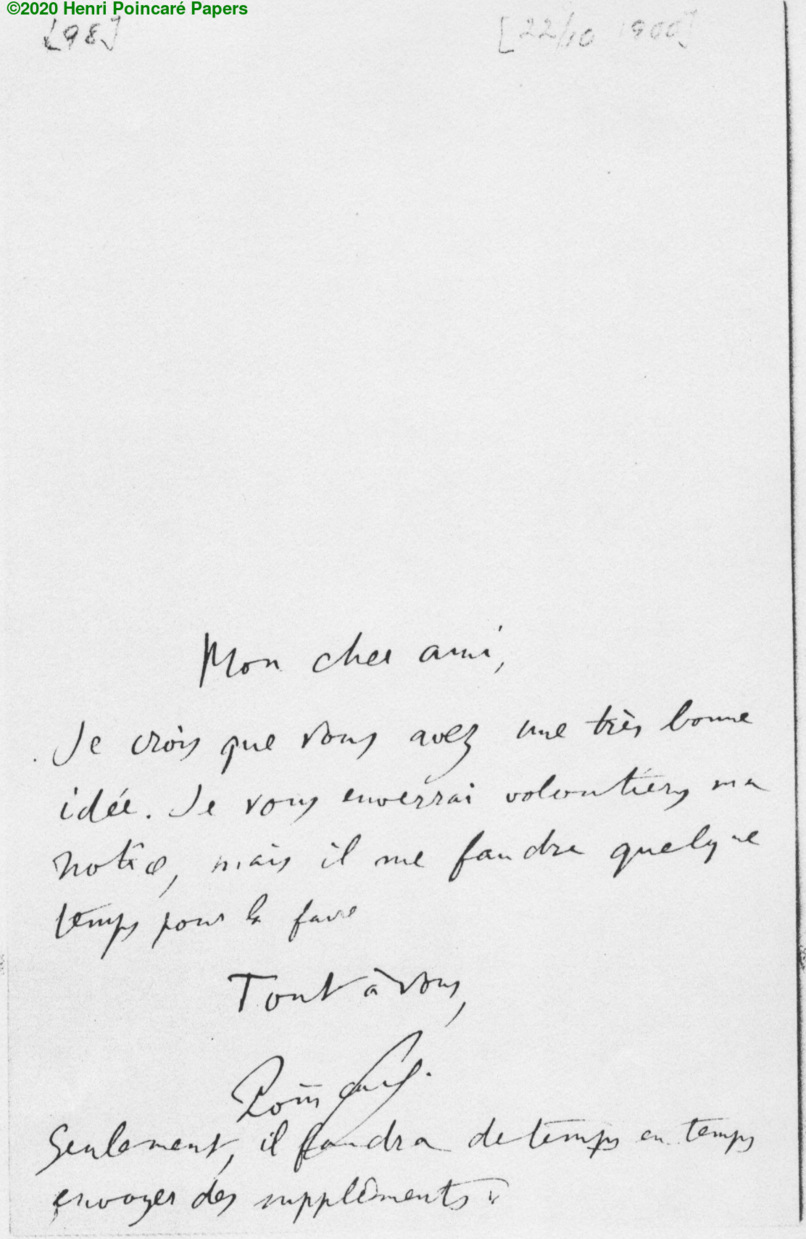 ©2020 Henri Poincaré Papers
[98] [22/10 1900]
Mon cher ami,
Je crois que vous avez une très bonne
idée. Je vous enverrai volontiers ma
notice, mais il me faudra quelque
temps pour la faire
Tout à vous,
Poincaré
Seulement, il faudra de temps en temps
envoyer des suppléments